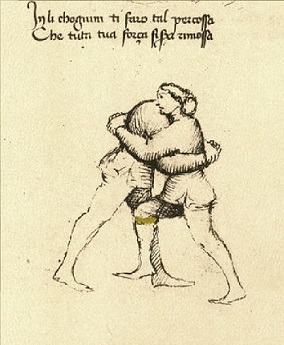 In li chogiuni ti faro tal percossa
Che tuta tua força si fia rimossa